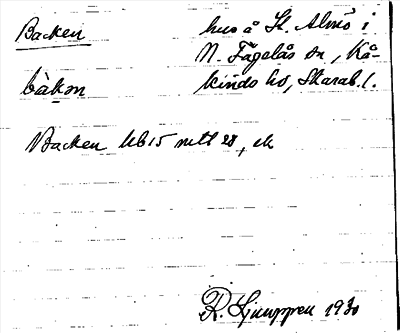 Backen
hus å St. Almö i
N. Fågelås sn, Kå-
kinds hd, Skarab. l.
bàkɷn
Backen Ub15 mtl 28, ek
R. Ljunggren 1930